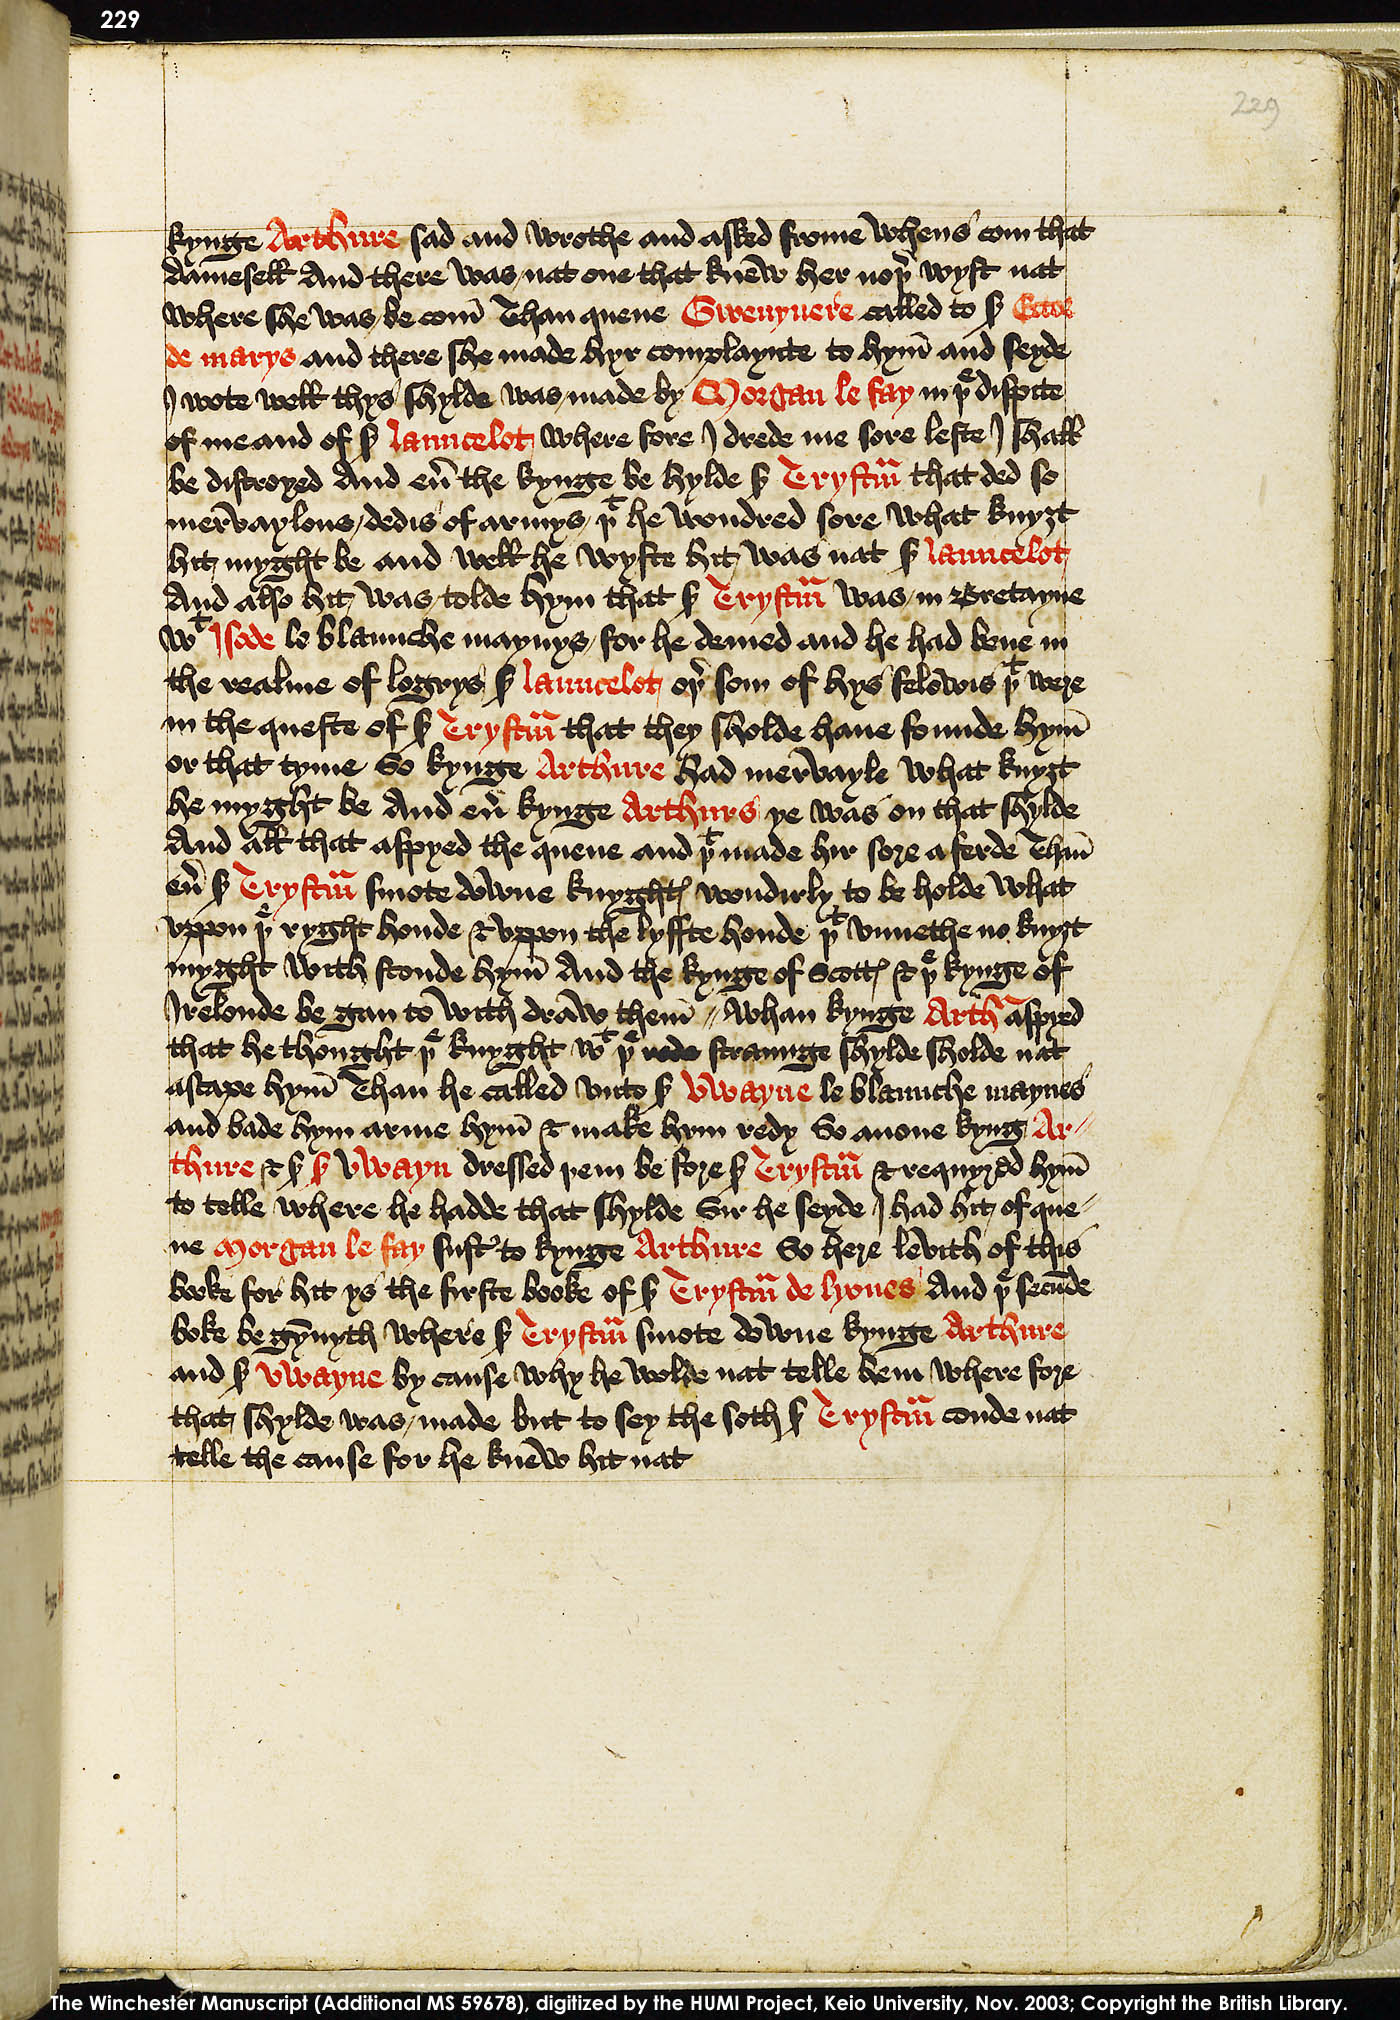 229
229
kynge Arthure sad and wrothe and asked frome whens com that
damesell And there was nat one that knew her noþr wyst nat
where she was be com̄ Than quene Gwenyuere called to sr Ector
de marys and there she made hyr complaynte to hym̄ and seyde
I wote well thys shylde was made by Morgan le fay in þe dispite
of me and of sr launcelot where fore I drede me sore leste I shall
be distroyed And eū the kynge be hylde sr Trystrm̄ that ded so
mervaylous dedis of armys þt he wondred sore what knyȝt
hit myght be and well he wyste hit was nat sr launcelot
And also hit was tolde hym that sr Trystrm̄ was in Bretayne
wt Isode le blaunche maynys for he demed and he had bene in
the realme of logrys sr launcelot oþr som of hys felowis þt were
in the queste of sr Trystrm̄ that they sholde haue founde hym̄
or that tyme So kynge Arthure had mervayle what knyȝt
he myght be And eū kynge Arthurs ye was on that shylde
And all that aspyed the quene and þt made hir sore aferde Than̄
eū sr Trystrm̄ smote downe knyghtes wondirly to be holde what
vppon þe ryght honde & vppon the lyffte honde þt vnnethe no knyȝt
myght with stonde hym̄ And the kynge of Scottes & þe kynge of
Irelonde be gan to with draw them̄ // whan kynge Arthr aspyed
that he thought þe knyght wt þe straunge shylde sholde nat
ascape hym̄ Than he called vnto sr vwayne le blaunche maynes
and bade hym arme hym̄ & make hym redy So anone kyng Ar=
thure & sr sr vwayn dressed þem be fore sr Trystrm̄ & requyred hym̄
to telle where he hadde that shylde Sir he seyde I had hit of que=
ne Morgan le fay sustr to kynge Arthure So here levith of this
booke for hit ys the firste booke of sr Trystrm̄ de lyones And þe secūde
boke begȳnyth where sr Trystrm̄ smote downe kynge Arthure
and sr vwayne by cause why he wolde nat telle hem where fore
that shylde was made but to sey the soth sr Trystrm̄ coude nat
telle the cause for he knew hit nat
The Winchester Manuscript (Additional MS 59678), digitized by the HUMI Project, Keio University, Nov. 2003; Copyright the British Library.